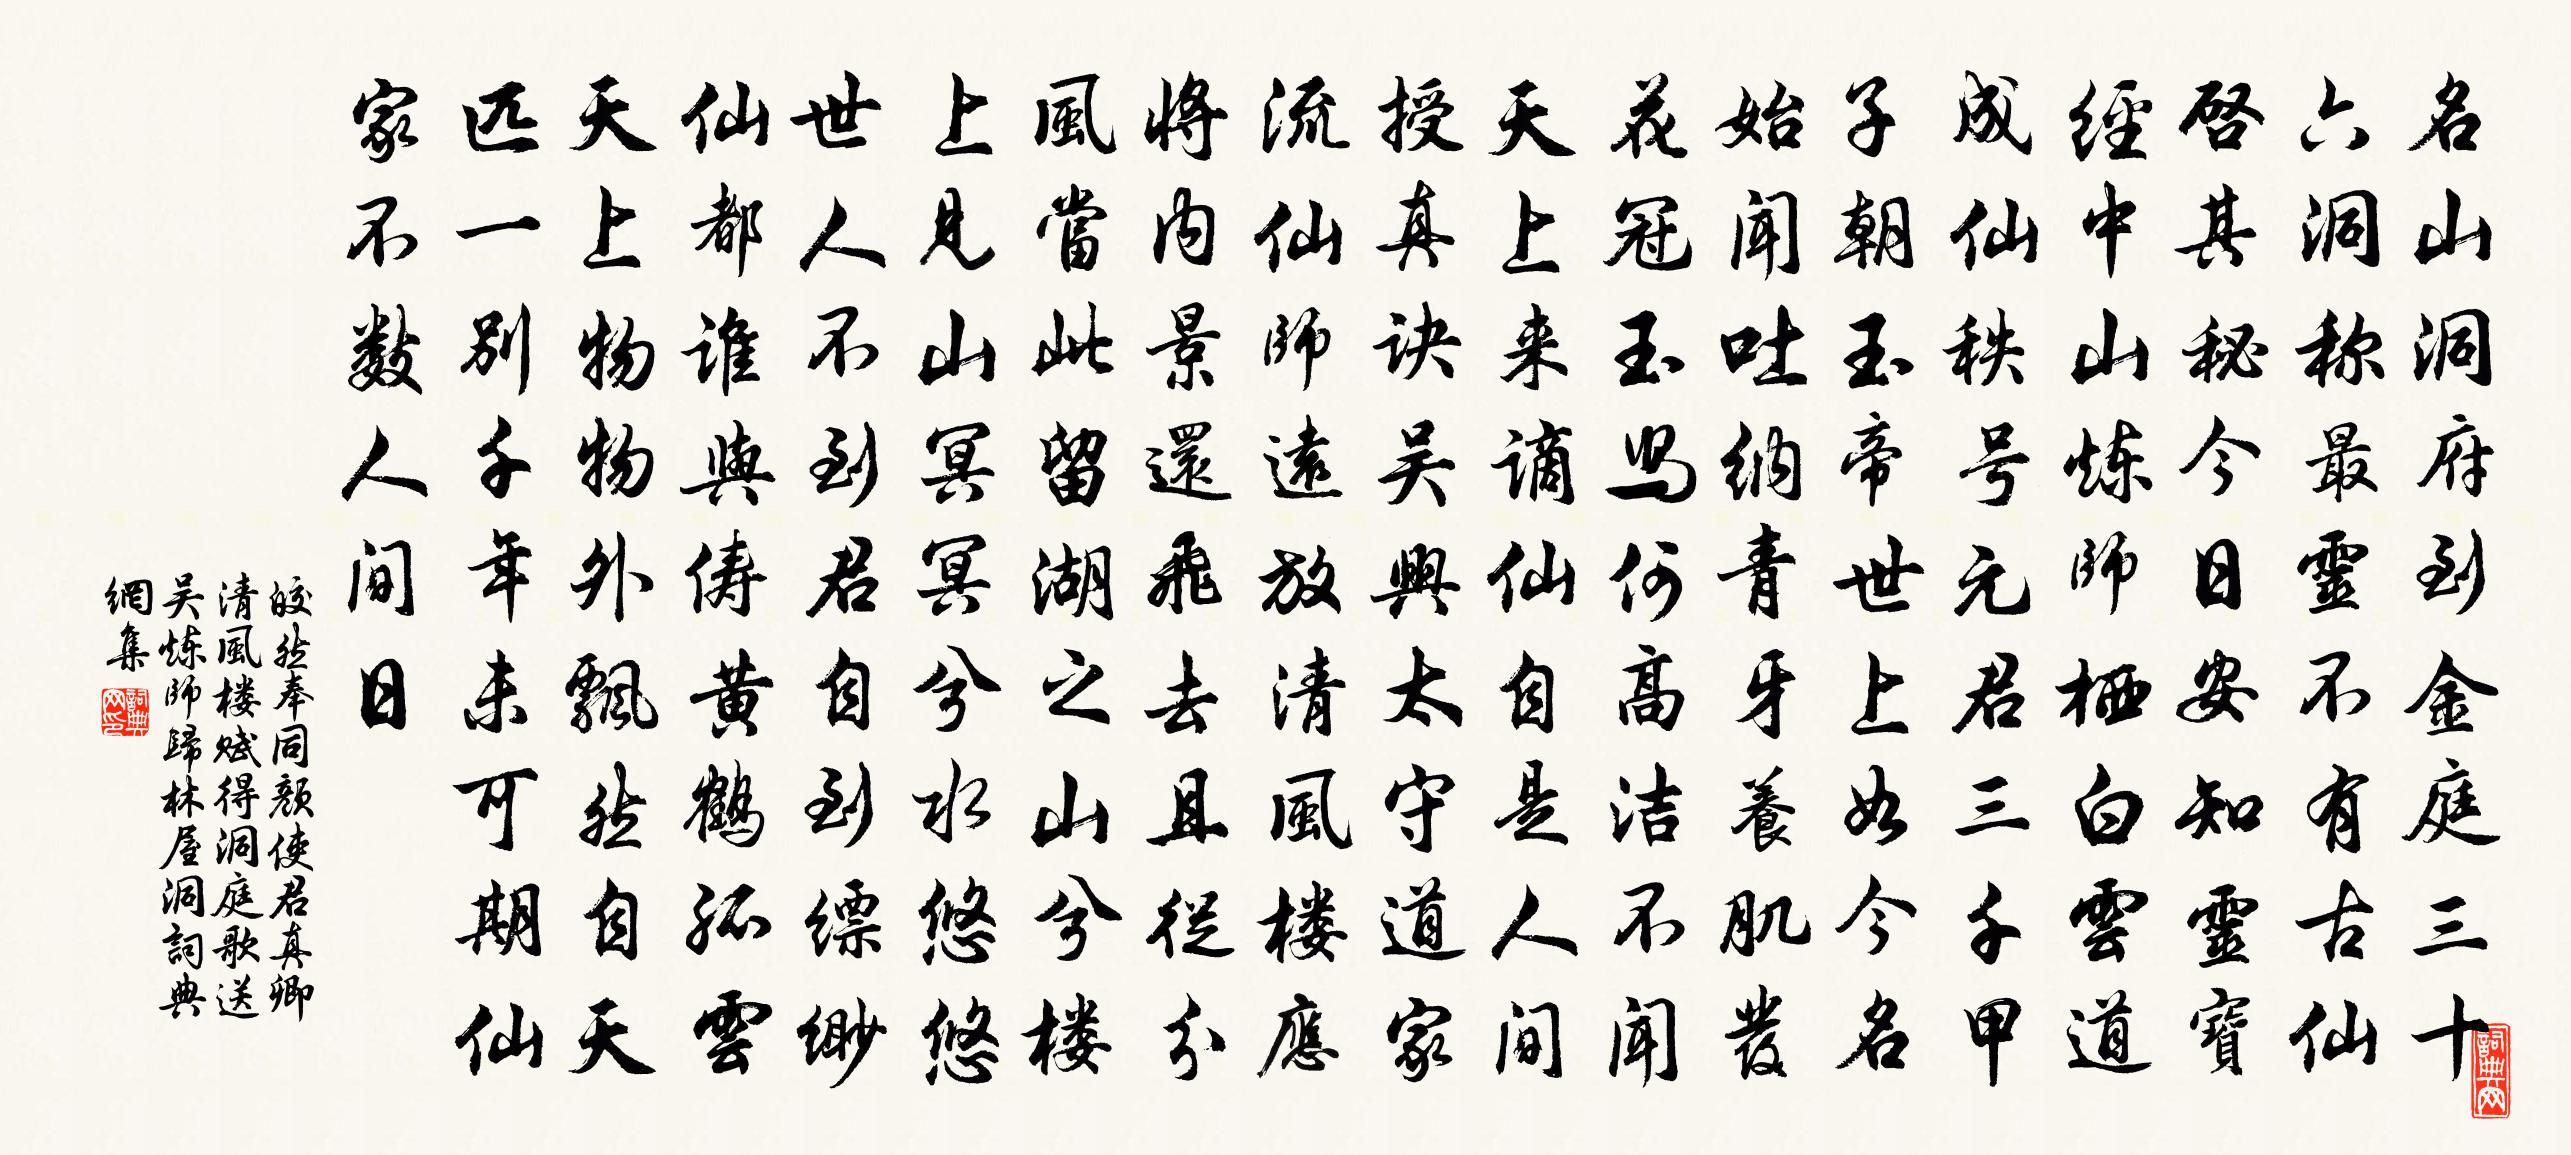 名山洞府到金庭三十
六洞称最靈不有古仙
啓其秘今日安知靈寶
經中山炼師栖白雲道
成仙秩号元君三千甲
子朝玉帝世上如今名
始聞吐纳青牙養肌發
花冠玉舄何高洁不聞
天上来谪仙自是人间
授真诀吴興太守道家
流仙師遠放清風楼應
將内景還飛去且從分
風當此留湖之山兮楼
上見山冥冥兮水悠悠
世人不到君自到缥缈
仙都谁與俦黄鶴孤雲
天上物物外飄然自天
匹一别千年未可期仙
家不数人间日
皎然奉同颜使君真卿
清風楼赋得洞庭歌送
吴炼師歸林屋洞詞典
網集
詞典网印
詞典网